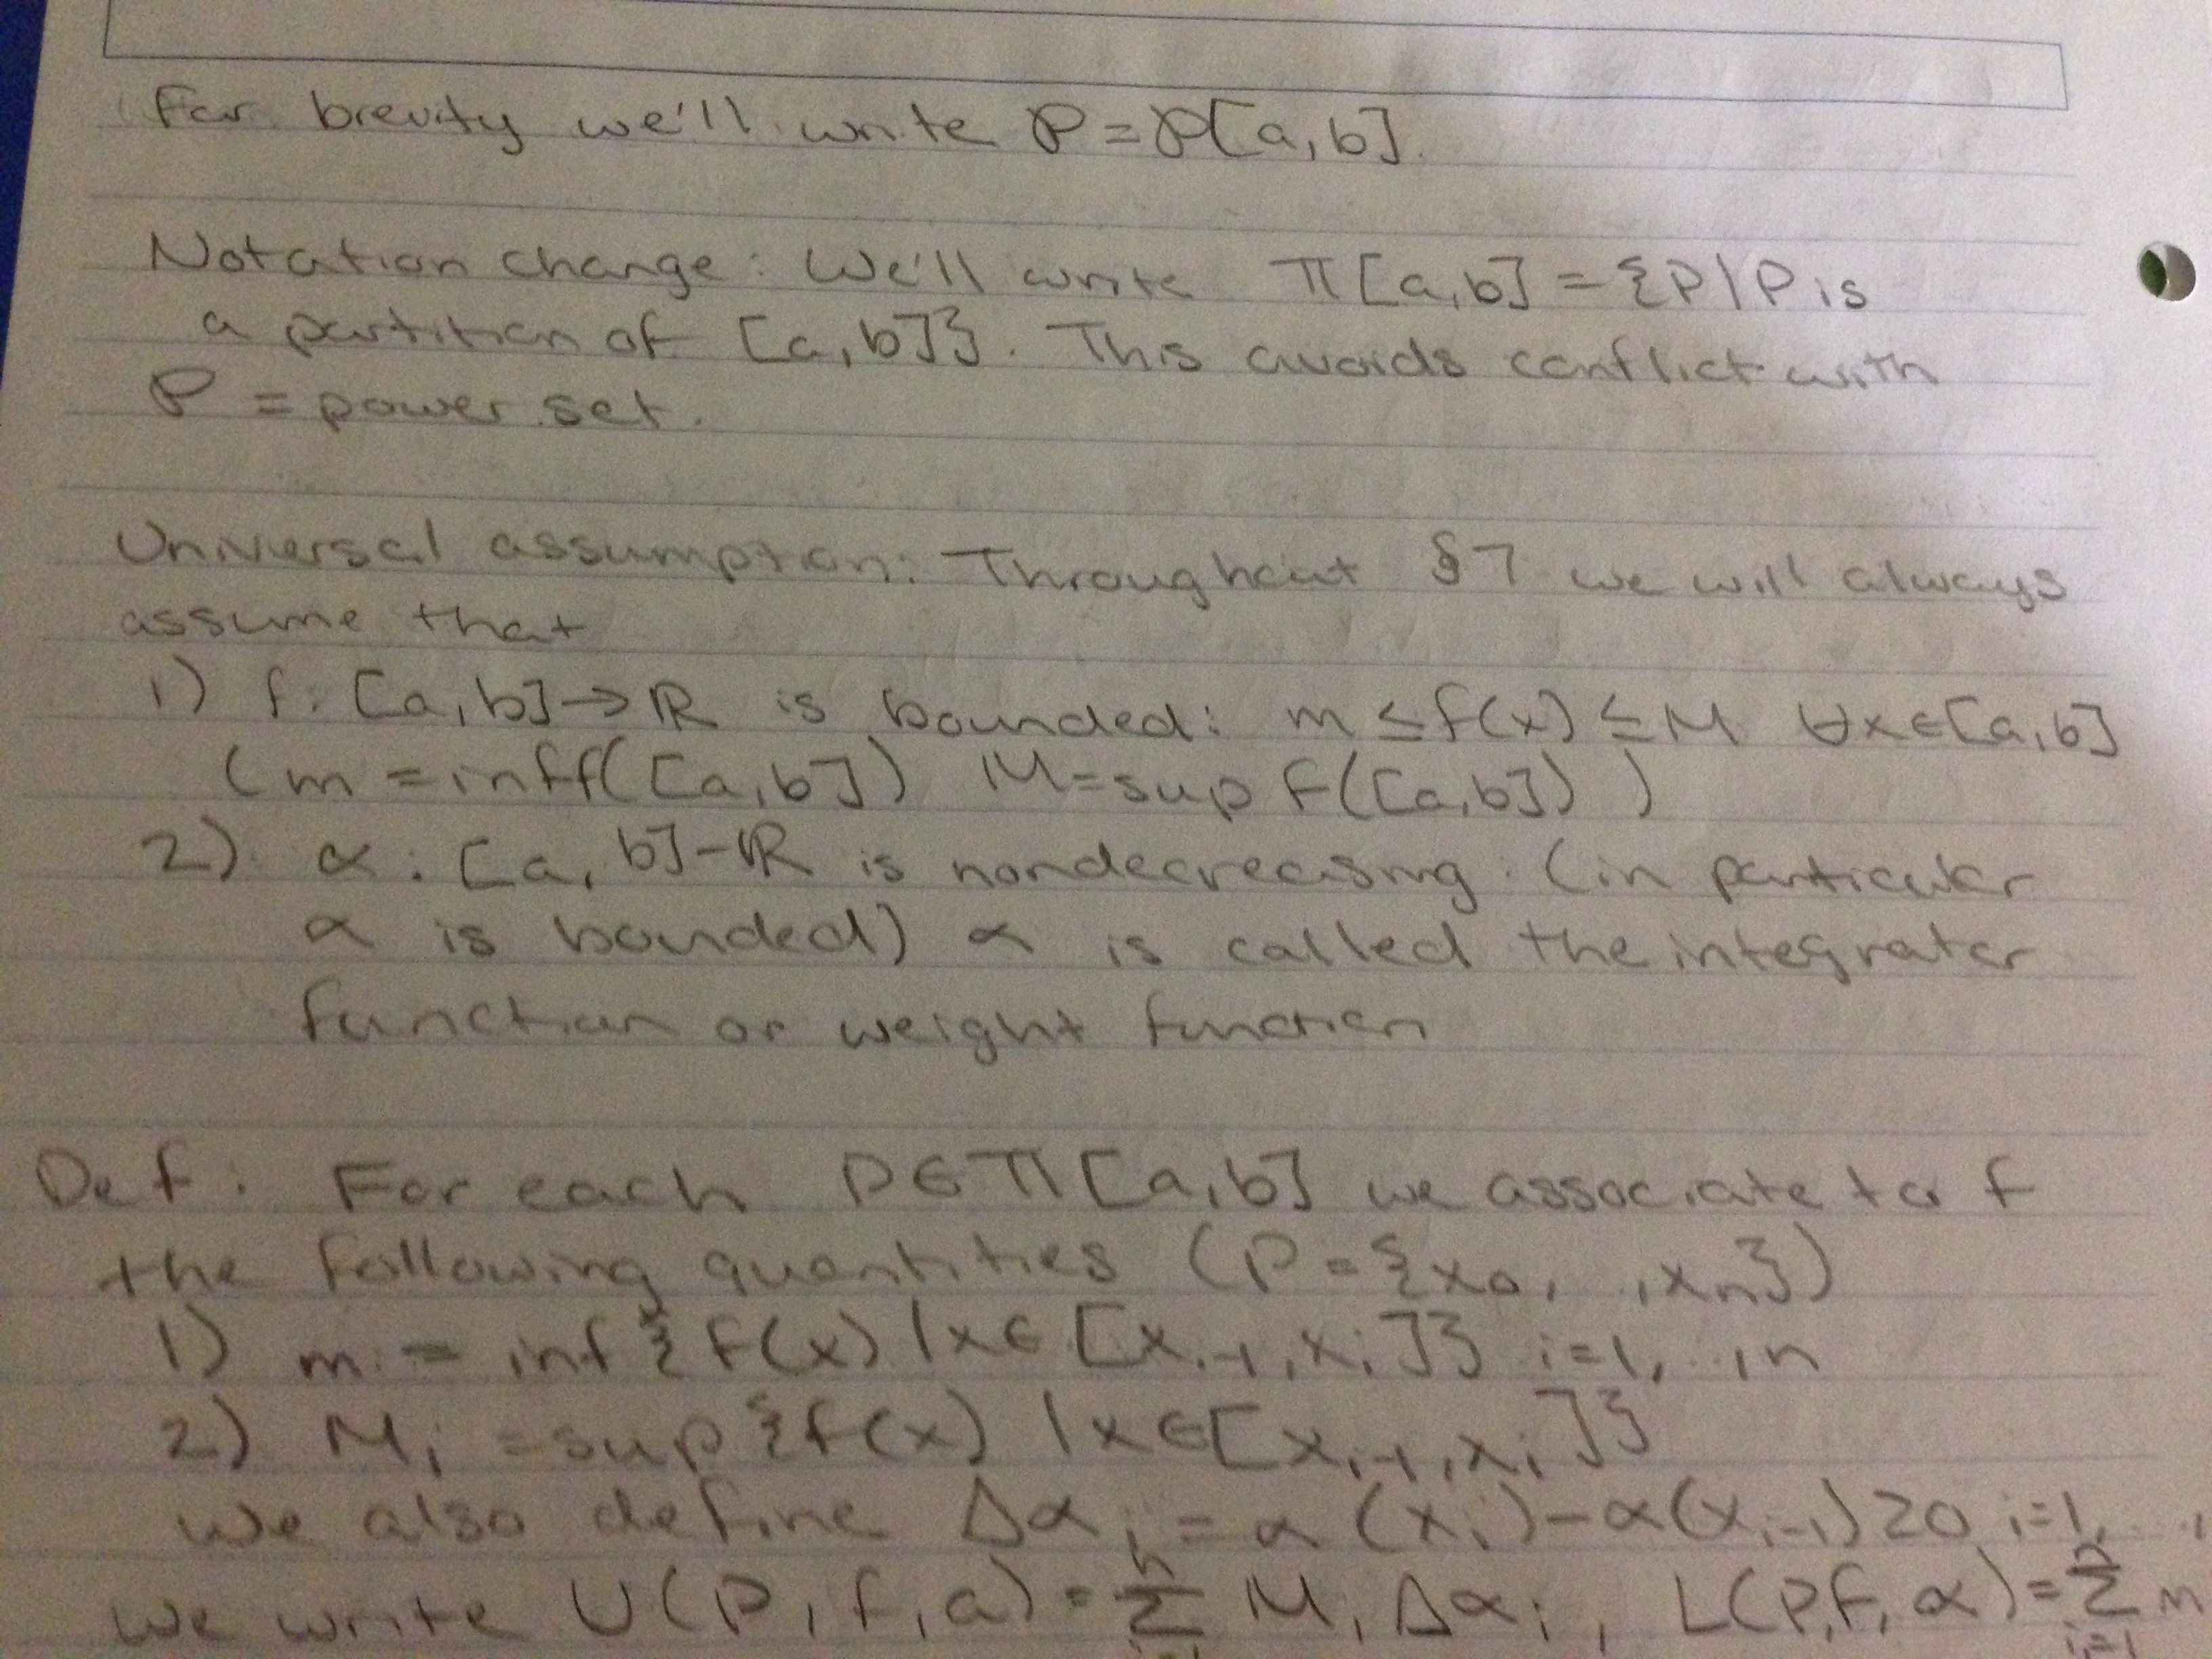 For brevity we'll write 𝒫 = 𝒫[a,b].
Notation change: We'll write Π[a,b] = {P|P is
a partition of [a,b]}. This avoids conflict with
𝒫 = power set.
Universal assumption: Throughout §7 we will always
assume that
1) f: [a,b]→ℝ is bounded: m ≤ f(x) ≤ M ∀x∈[a,b]
(m = inf f([a,b]) M = sup f([a,b]) )
2) α: [a, b]-ℝ is nondecreasing. (in particular
α is bounded) α is called the integrator
function or weight function
Def: For each P∈Π[a,b] we associate to f
the following quantities (P = {x₀, ,xₙ})
1) mᵢ = inf {f(x) |x∈ [xᵢ₋₁,xᵢ]} i=1, .. ,n
2) Mᵢ = sup {f(x) |x∈[xᵢ₋₁,xᵢ]}
we also define Δαᵢ = α(xᵢ)-α(xᵢ₋₁)≥0 i=1, . . ,
we write U(P, f, α) = Σⁿ Mᵢ Δαᵢ, L(P,f, α) = Σⁿᵢ₌₁ m